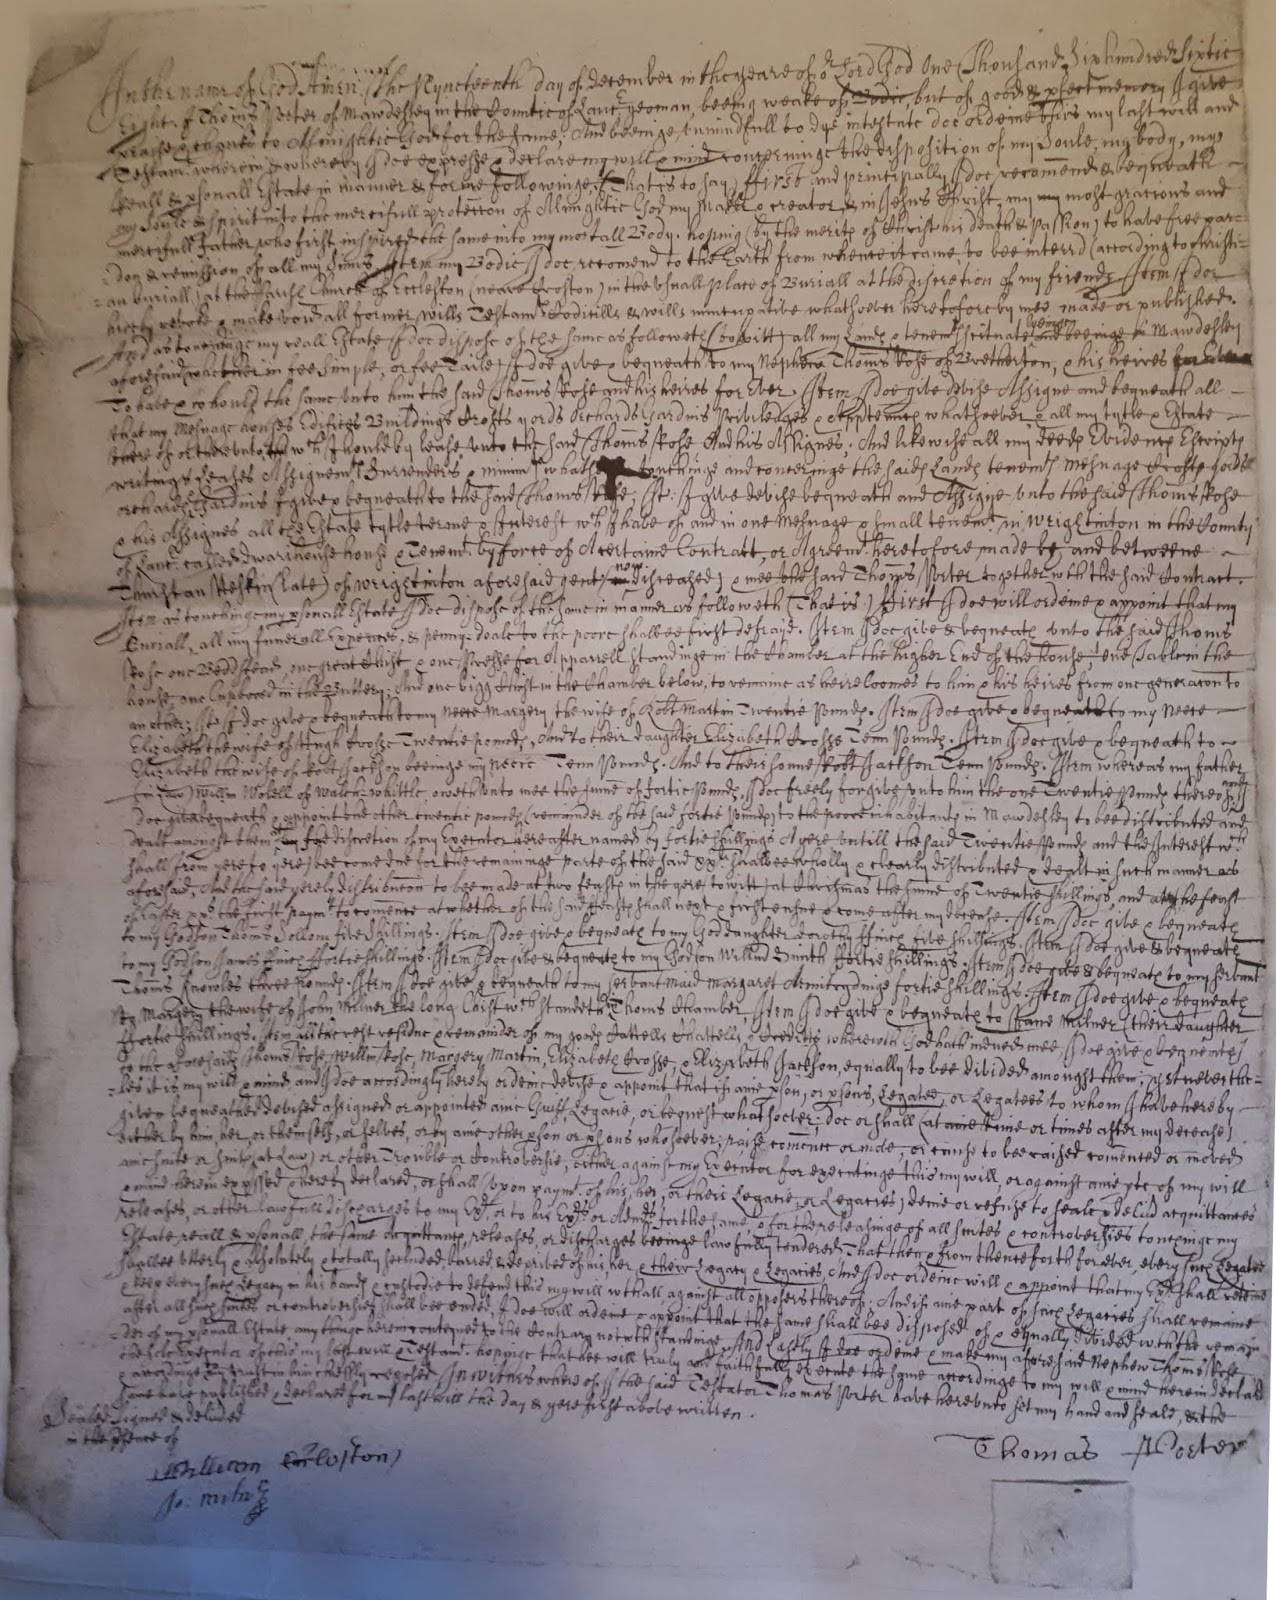 In the name of God Amen, The Nyneteenth day of December in the yeare of or Lord God One Thousand Six hundred Sixtie
Eight, I Thoms Porter of Mawdesley in the Countie of Lanc yeoman, beeing weake of Bodie, but of good & pfect memory I give
praise & thanks to Almightie God for the same; And beeinge unmindfull to dye intestate doe ordeine this my last will and
Testamt wherein & whereby I doe expresse & declare my will & mind concerninge the disposition of my Soule, my body, my
reall & psonall Estate in manner & forme followinge (That is to say) First and principally I doe recomend & bequeath
my Soule & spirit into the mercifull protection of Almightie God my Maker & creator, & in Jesus Christ, my most gracious and
mercifull Father who first inspired the same into my mortall Body. hoping (by the merits of Christ his death & Passion) to have free par-
-don & remission of all my Sinns Item my Bodie I doe recomend to the Earth from whence it came, to bee interrd (according to christi-
-an buriall) at the Parish Church of Eccleston (neare Croston) in the usuall place of Buriall at the discretion of my friends Item I doe
hereby revoke & make voyd all former wills Testamts Codicills & wills nuncupative whatsoever heretofore by mee made or published.
And as touchinge my reall Estate I doe dispose of the same as followeth (to witt) all my Lands & tenemts scituate lyeinge and beeinge in Mawdesley
aforesaid whether in fee Simple, or fee Taile I doe give & bequeath to my Nephew Thoms Rose of Bretherton, & his heires for Ever
To have & to hould the same unto him the said Thoms Rose and his heires for Ever Item I doe give devise Assigne and bequeath all
that my Mesuage houses Edifices Buildings Crofts yords Orchards Gardins Priviledges & Apptenncs whatsoever & all my tytle & Estate
there of or thereunto wch I hould by lease unto the said Thoms Rose And his Assignes; And likewise all my deeds Evidents Escripts
writings Leases Assignemts Surrenders & minimts touchinge and concerninge the saide Lands tenemts Mesuage Crofts yords
orchards Gardins I give & bequeath to the said Thoms Rose; Itt: I give devise bequeath and Assigne unto the said Thoms Rose
& his Assignes all the Estate tytle terme & Interest wch I have of and in one Mesuage & small tenemt in Wrightinton in the County
of Lanc. called house & Tenemt by force of A certaine Contract, or Agreemt heretofore made by and betweene
Thurstan (late) of wrightinton aforesaid gent (now disceased) & mee the said Thoms Porter together with the said Contract.
Item as touchinge my psonall Estate I doe dispose of the same in manner as followeth (That is) First I doe will ordeine & appoint that my
Buriall, all my funerall Expences, & penny-doale to the poore shall bee first defrayd. Item I doe give & bequeath unto the said Thoms
Rose one Bedd stead, one great Chist & one Presse for Apparrell standinge in the Chamber at the higher End of the house, one Table in the
house, one Cupbord in the Buttery; And one bigg Chist in the Chamber below, to remaine as heireloomes to him & his heires from one generacon to
another; Itt: I doe give & bequeath to my Neece Margery the wife of Robt Martin Twentie Pounds. Item I doe give & bequeath to my Neece
Elizabeth the wife of Hugh Crosse Twentie pounds, And to their daughter Elizabeth Crosse Tenn Pounds. Item I doe give & bequeath to
Elizabeth the wife of Robt Jackson beeinge my neece Tenn Pounds. And to their sonne Robt Jackson Tenn Pounds. Item whereas my Father
(in law) Willm of Walch-whittle oweth unto mee the sume of fortie Pounds, I doe freely forgive unto him the one Twentie Pounds thereof
doe give bequeath & appoint the other twentie pounds (remainder of the said fortie Pounds) to the poore inhabitants in Mawdesley to bee distributed and
dealt amongst them by the discretion of my Executor hereafter named by fortie shillings A yeare untill the said Twentie Pounds and the Interest wch
shall from yere to yere bee come due for the remaininge parte of the said xxli shall bee wholly & clearly distributed & dealt in such manner as
aforesaid, And the said yerely distribucon to be made at two feasts in the yere to witt, at Christmas the sume of Twentie shillings, and at the feast
of Easter xxs the first paymt to comence at whether of the said feasts shall next & first ensue & come after my decease. Item I doe give & bequeath
to my Godson Thoms Sollom five shillings. Item I doe give & bequeath to my God daughter Dorothy five shillings. Item I doe give & bequeath
to my Godson James Fortie shillings. Item I doe give & bequeath to my Godson Willm Smith Fortie shillings. Item I doe give & bequeath to my servant
Thoms Knowles three Pounds. Item I doe give & bequeath to my servant maid Margaret fortie shillings. Item I doe give & bequeath
to Margery the wife of John Milner the long Chist wch standeth in Thoms Chamber, Item I doe give & bequeath to Jane Milner (their daughter
Fortie shillings. Item all the rest residue & remainder of my goods Cattells Chattells & Credits wherewith God hath indued mee, I doe give & bequeath
to the aforesaid Thoms Rose, Willm Rose, Margery Martin, Elizabeth Crosse, & Elizabeth Jackson, equally to bee divided amongst them; yet never the-
-les it is my will & mind, and I doe accordingly hereby ordeine devise & appoint that if anie pson, or psons, Legatee, or Legatees to whom I have hereby
given bequeathed devised assigned or appointed anie Guift, Legacie, or bequest whatsoever; doe or shall (at anie time or times after my decease)
either by him her, or themself, or selves, or by anie other pson or psons whosoever; raise comence or move, or cause to bee raised comenced or moved
anie suite or suits (at Law) or other Trouble or Controversie, either against my Executor for executinge this my will, or against anie pte of my will
& mind herein expssed & hereby declared, or shall (upon paymt of his, her, or theis Legacie, or Legacies) denie or refuse to seale & delivr acquittances
releases, or other lawfull discharges to my Extr or to his Extrs or Admrs for the same, & for the releasinge of all suites & controversies touchinge my
Estate reall & psonall, the same Acquittance, releases, or discharges beeinge lawfully tendered, That then & from thence forth for ever, every such Legatee
shall bee utterly & absolutely & totally secluded, barred & deprived of his, her, & their Legacy & Legacies, And I doe ordeine will & appoint that my Extr shall reteine
& keep every such Legacy in his hands & custodie to defend this my will withall against all opposers thereof. And if anie part of such Legacies shall remaine
after all such suites or controversies shall bee ended, I doe will ordeine & appoint that the same shall bee disposed of & equally divided with the remain-
-der of my psonall Estate, any thinge herein conteyned to the Contrary not with standinge. And Lastly I doe ordeine & make my aforesaid Nephew Thoms Rose
the sole Executor of this my last will & Testamt hoping that hee will truly and faithfully execute the same accordinge to my will & mind herein declard
& accordinge to my trust in him cheefly reposed. In witnes whereof I the said Testator Thomas Porter have hereunto set my hand and seale, & the
same have published & declared for my last will the day & yere first above written.
Sealed Signed & deliverd
in the psence of
William Croston
Jo: milnr
Thomas Porter